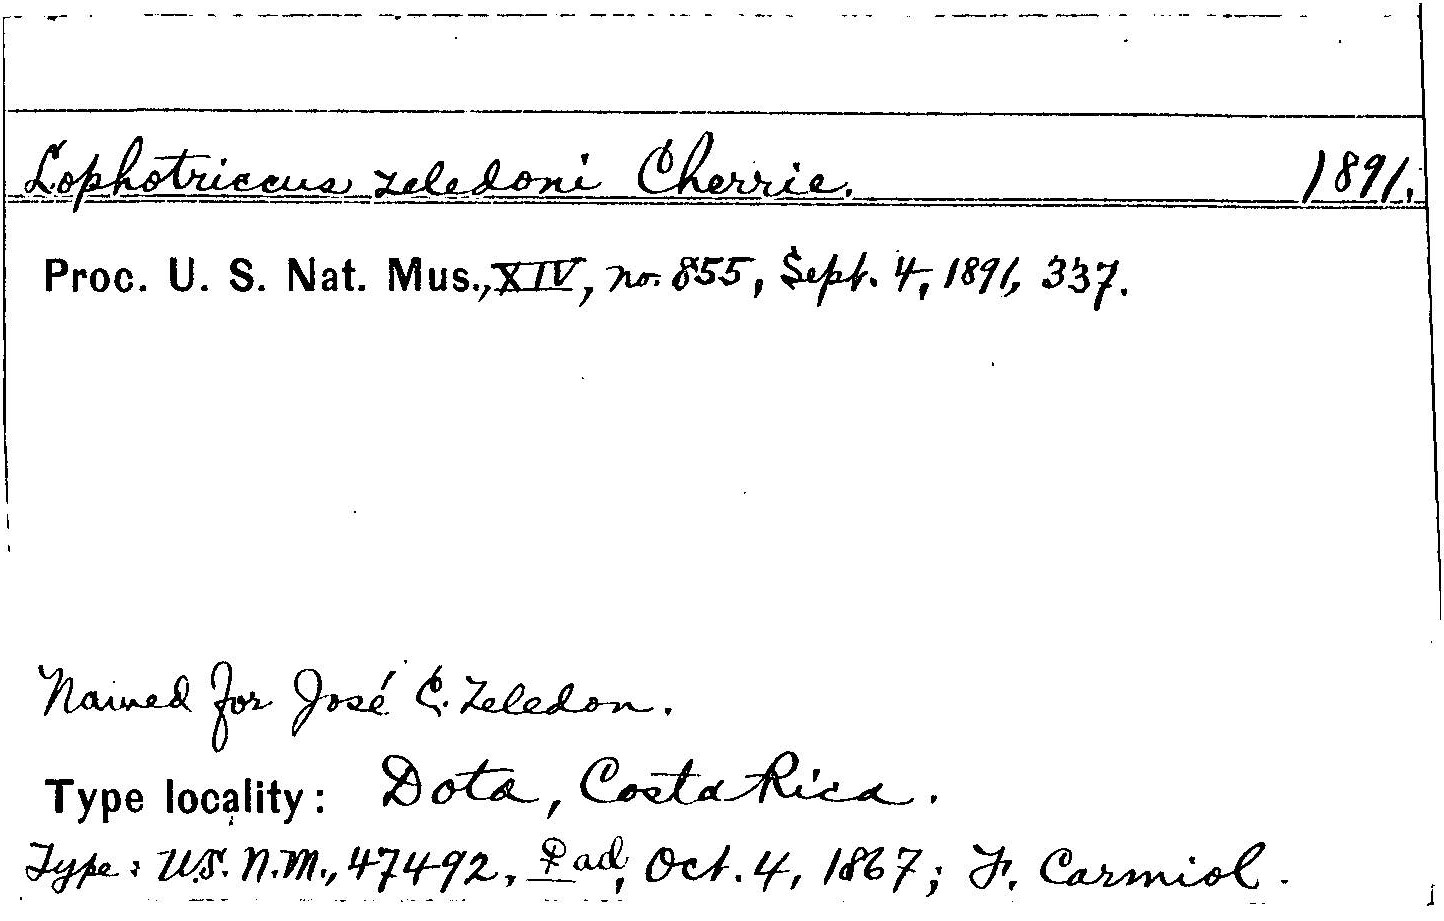 Lophotriccus zeledoni Cherrie. 1891.
Proc. U. S. Nat. Mus., XIV, no. 855, Sept. 4, 1891, 337.
Named for José C. Zeledon.
Type locality: Dota, Costa Rica.
Type: U.S. N.M., 47492, ♀ ad, Oct. 4, 1867; F. Carmiol.